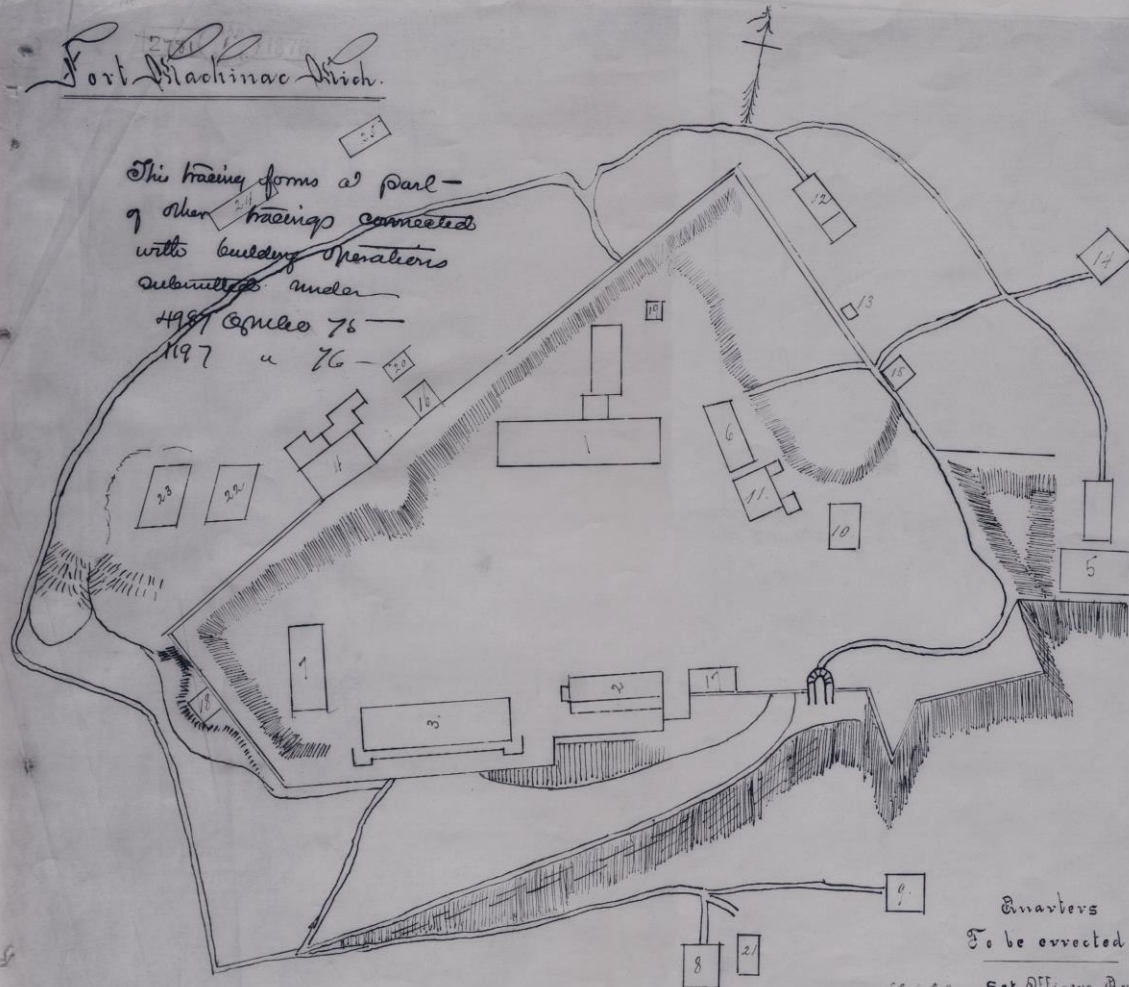 Fort Mackinac Mich.
25
This tracing forms a part-
of other tracings connected
24
with building operations
submitted under
4987 76 —
1197 " 76 —
20
12
14
13
19
15
16
1
6
4
11.
23
22
10
5
7
2
17
18
3.
9.
8
21
Quarters
To be errected